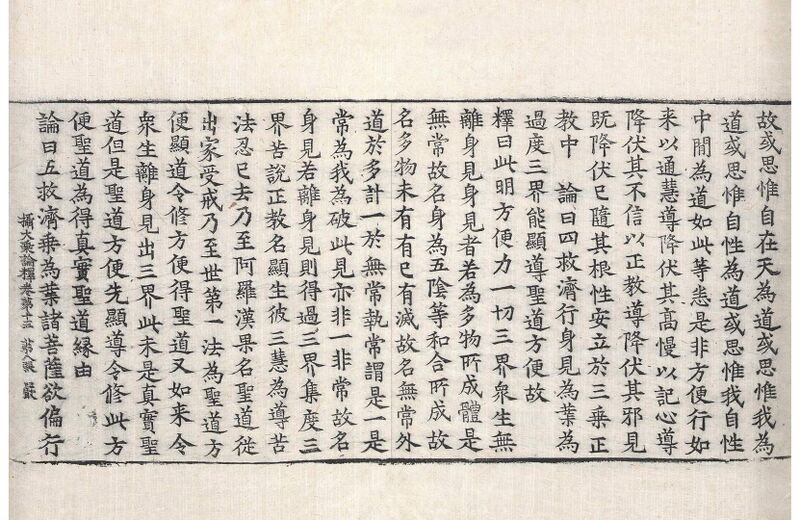 故或思惟自在天為道或思惟我為
道或思惟自性為道或思惟我自性
中間為道如此等悉是非方便行如
来以通慧導降伏其高慢以記心導
降伏其不信以正教導降伏其邪見
既降伏已隨其根性安立於三乗正
教中　論曰四救濟行身見為業為
過度三界能顯導聖道方便故
釋曰此明方便力一切三界衆生無
離身見身見者若為多物所成體是
無常故名身為五陰等和合所成故
名多物未有有已有滅故名無常外
道於多計一於無常執常謂是一是
常為我為破此見亦非一非常故名
身見若離身見則得過三界集度三
界苦說正教名顯生彼三慧為導苦
法忍已去乃至阿羅漢果名聖道從
出家受戒乃至世第一法為聖道方
便顯道令修方便得聖道又如来令
衆生離身見出三界此未是真實聖
道但是聖道方便先顯導令修此方
便聖道為得真實聖道緣由
攝大乗論釋卷第十五 第八張 嚴
論曰五救濟乗為業諸菩薩欲偏行